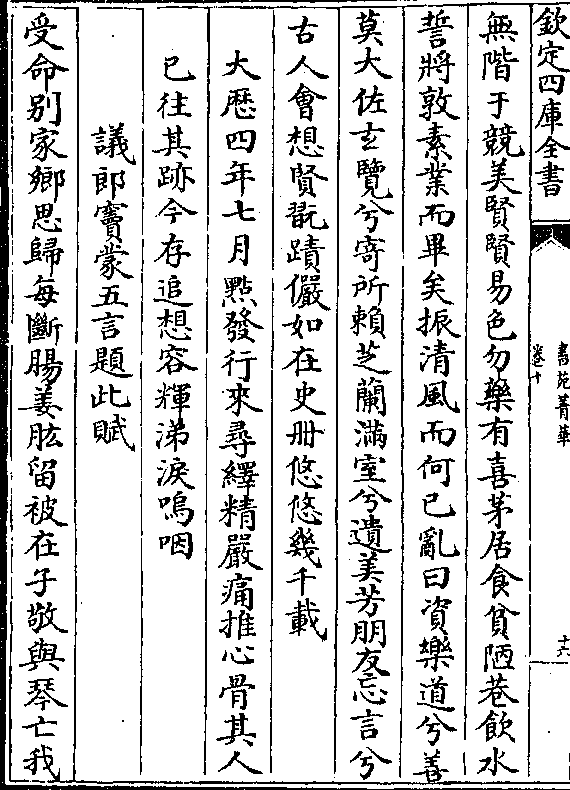 欽定四庫全書
書苑菁華
卷十
十六
無階于競美賢賢易色勿藥有喜茅居食貧陋巷飲水
誓將敦素業而畢矣振清風而何已亂曰資樂道兮善
莫大佐玄覽兮寄所賴芝蘭滿室兮遺美芳朋友忘言兮
古人會想賢翫蹟儼如在史冊悠悠幾千載
大厯四年七月點發行來尋繹精嚴痛推心骨其人
已往其跡今存追想容輝涕淚嗚咽
議郎竇蒙五言題此賦
受命别家鄉思歸每斷腸姜肱留被在子敬與琴亡我